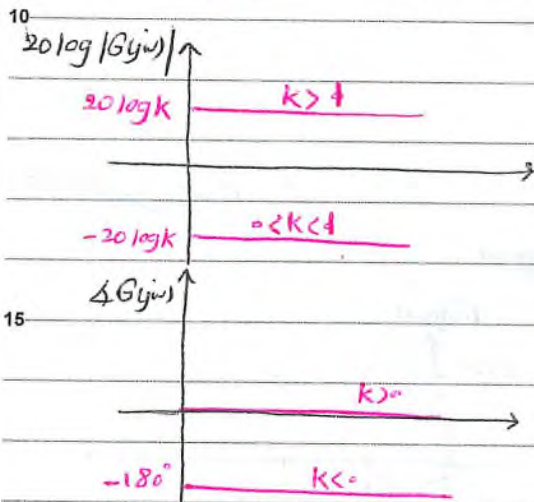 10
20log|G(jω)|
20logk k>1
-20logk 0<k<1
∡G(jω)
15
k>0
-180° k<0